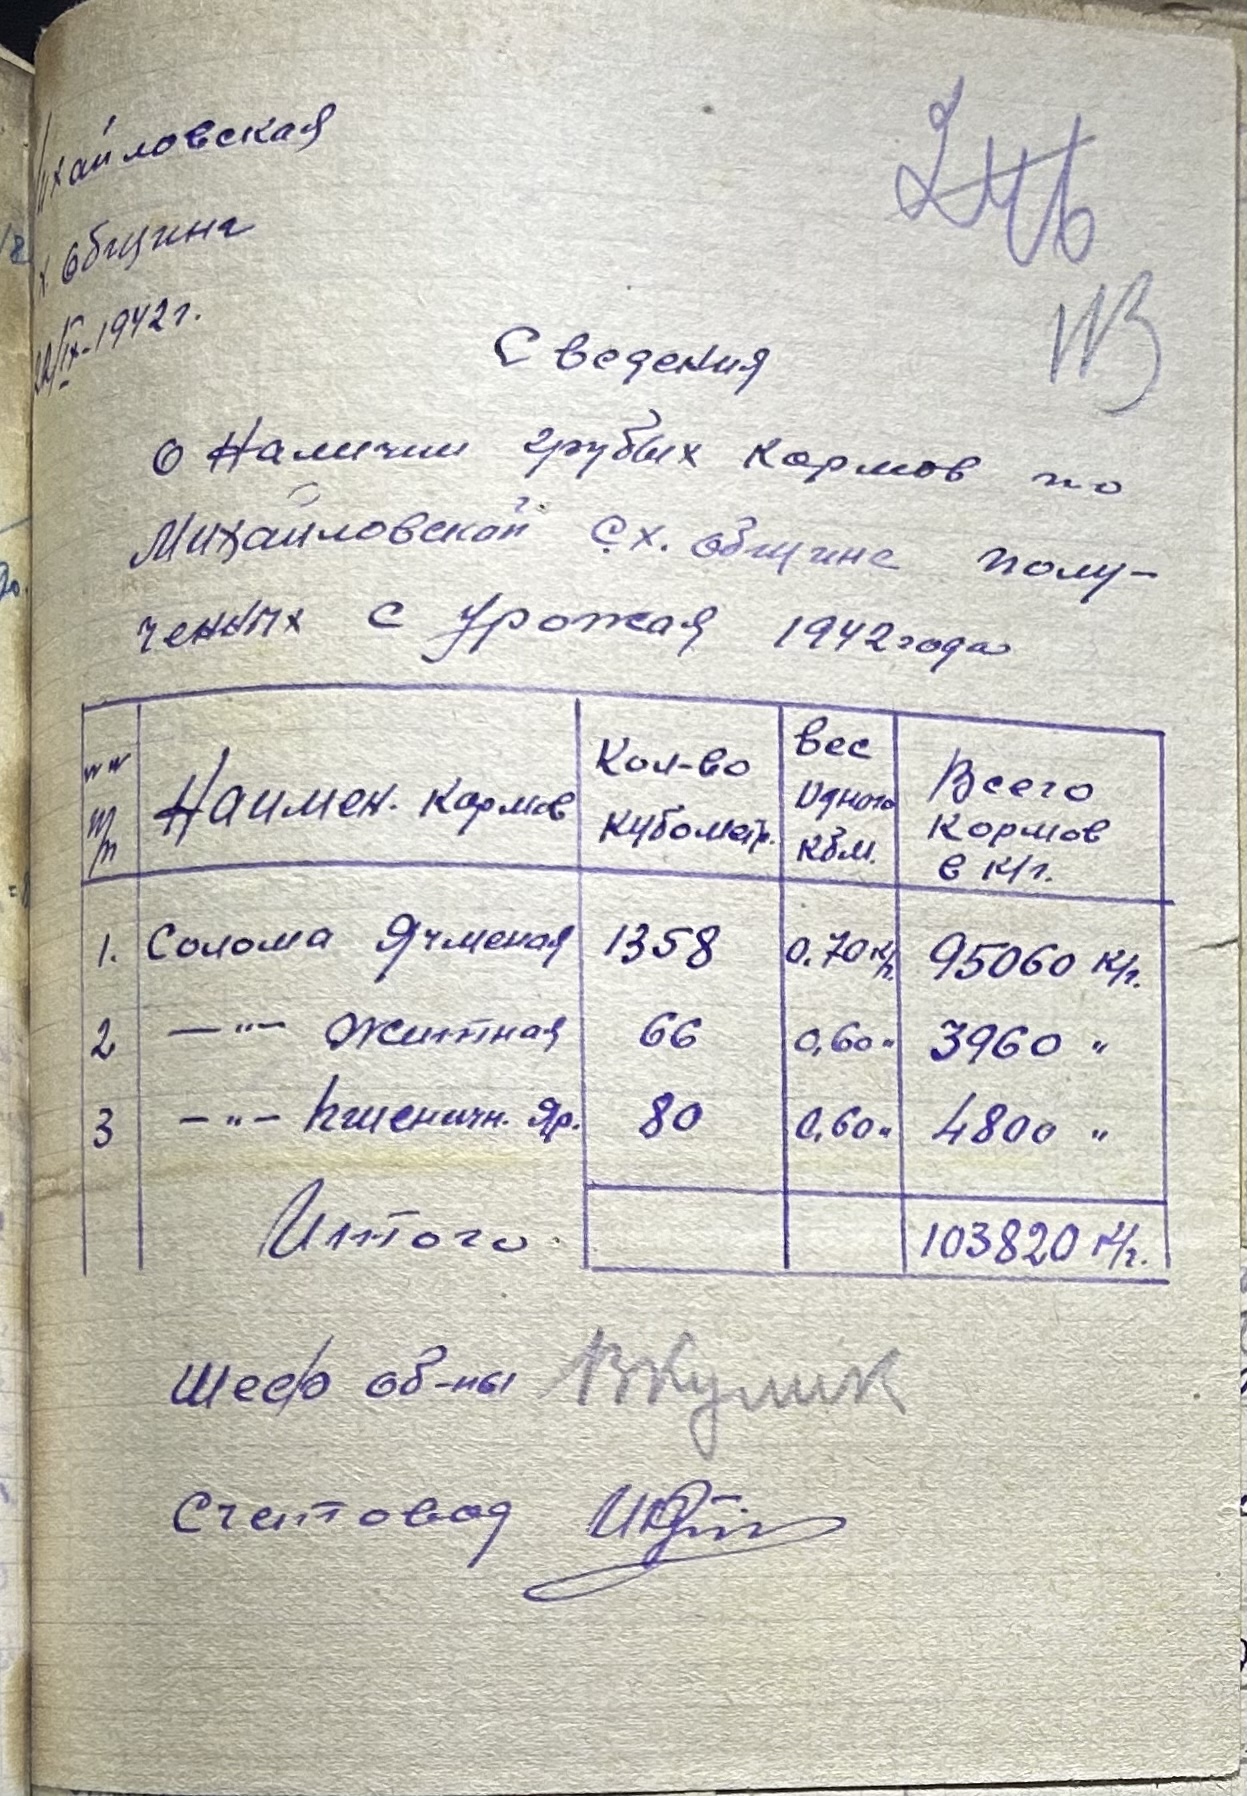 Михайловская
х. община
22/IX-1942 г.
Сведения
о наличии грубых кормов по
Михайловской с.х. общине полу-
ченных с урожая 1942 года
№№ п/п Наимен. кормов Кол-во кубометр. Вес одного кбм. Всего кормов в к/г.
1. Солома ячменая 1358 0,70 к/г. 95060 к/г.
2 —"— житная 66 0,60 " 3960 "
3 —"— пшеничн. яр. 80 0,60 " 4800 "
Итого 103820 к/г.
Шеф об-ны ВКулик
Счетовод